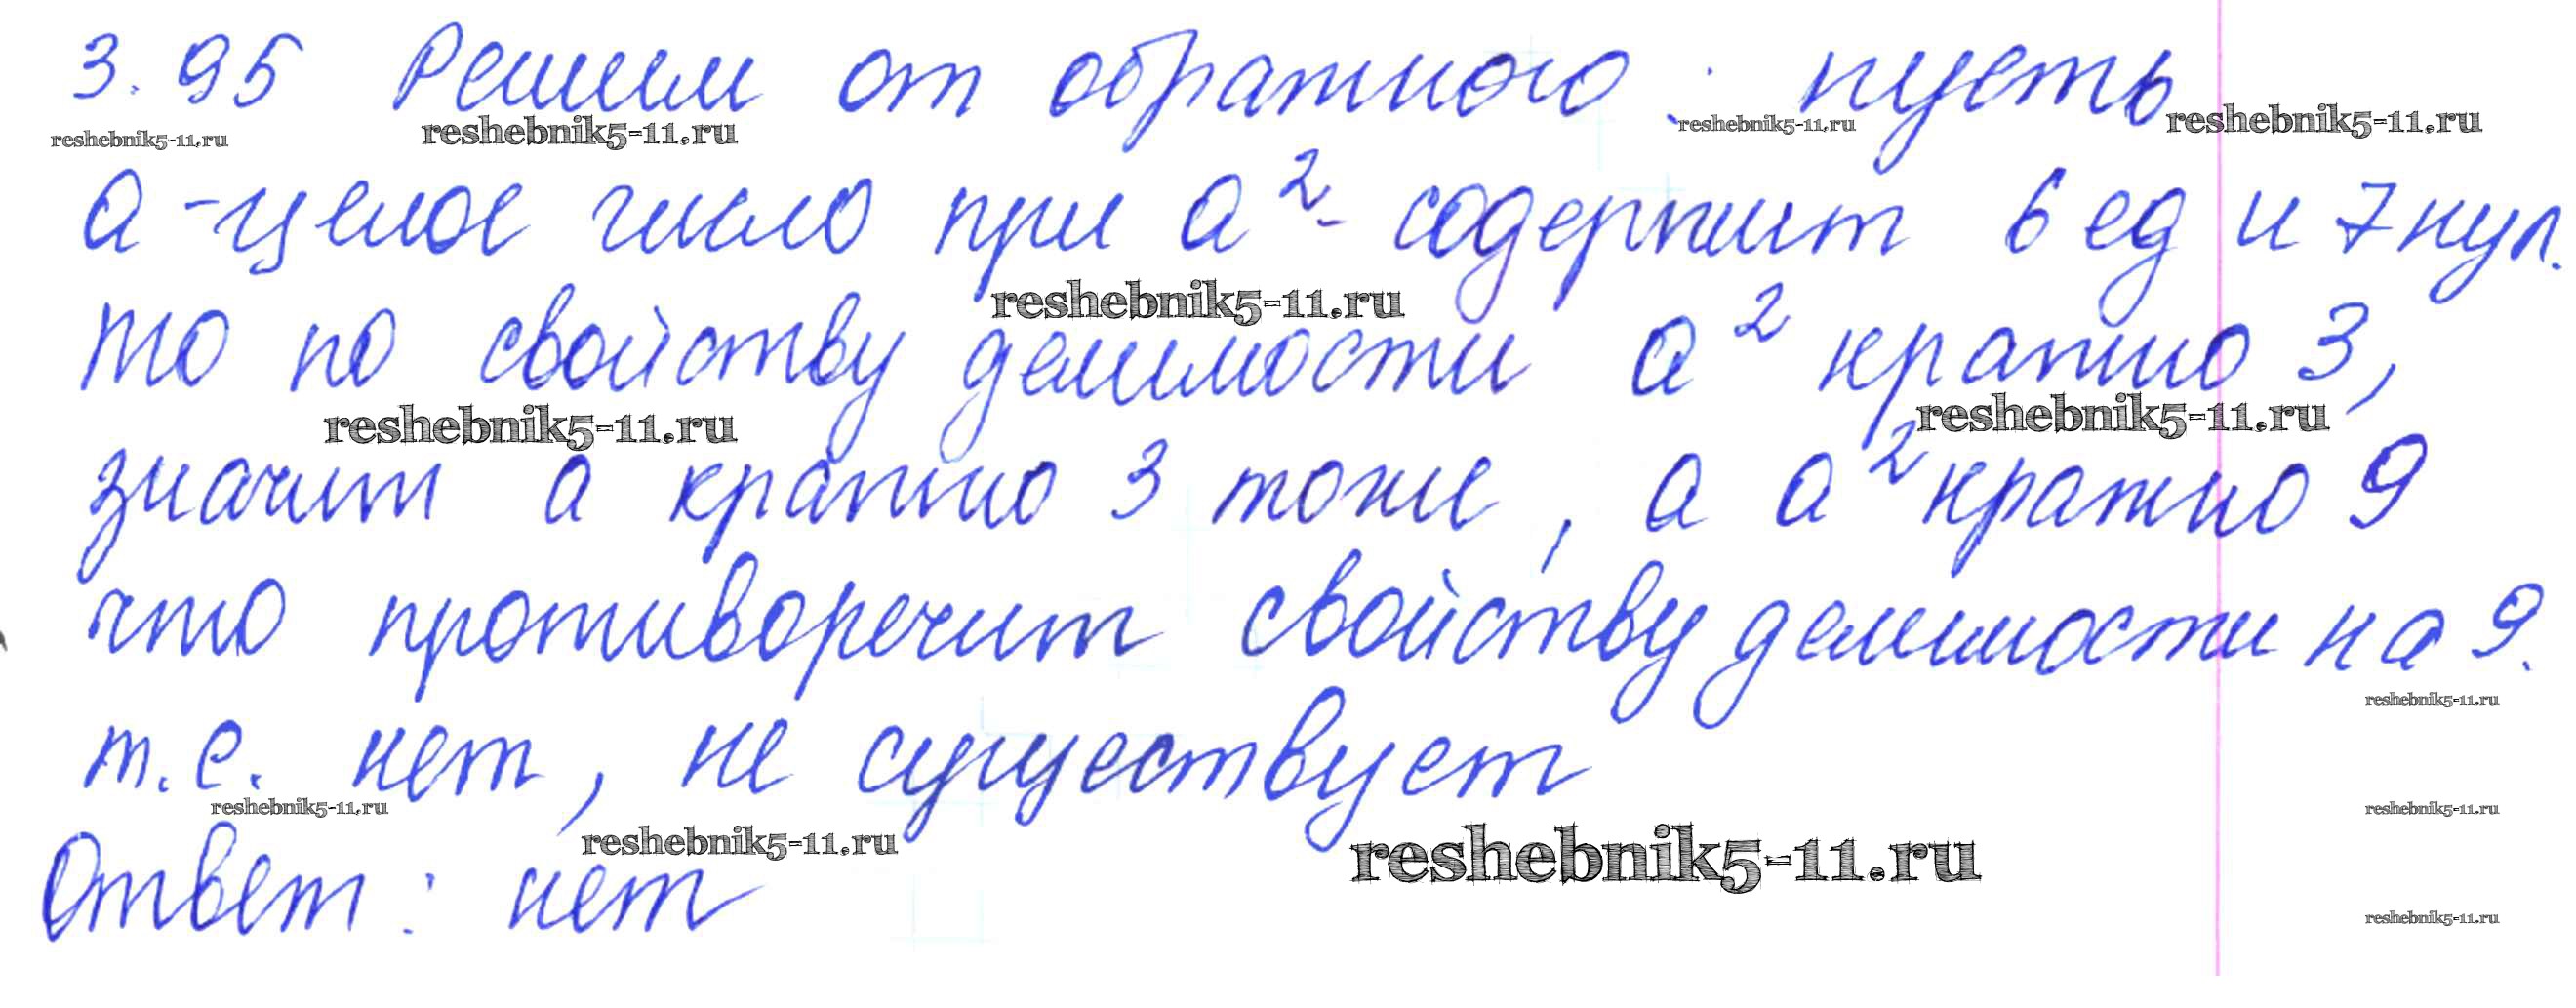 3.95 Решим от обратного: пусть
reshebnik5-11.ru reshebnik5-11.ru reshebnik5-11.ru reshebnik5-11.ru
а - целое число при а² - содержит 6 ед и 7 нул.
reshebnik5-11.ru
то по свойству делимости а² кратно 3,
reshebnik5-11.ru reshebnik5-11.ru
значит а кратно 3 тоже, а а² кратно 9
что противоречит свойству делимости на 9.
reshebnik5-11.ru
т.е. нет, не существует
reshebnik5-11.ru reshebnik5-11.ru
reshebnik5-11.ru reshebnik5-11.ru
Ответ: нет
reshebnik5-11.ru